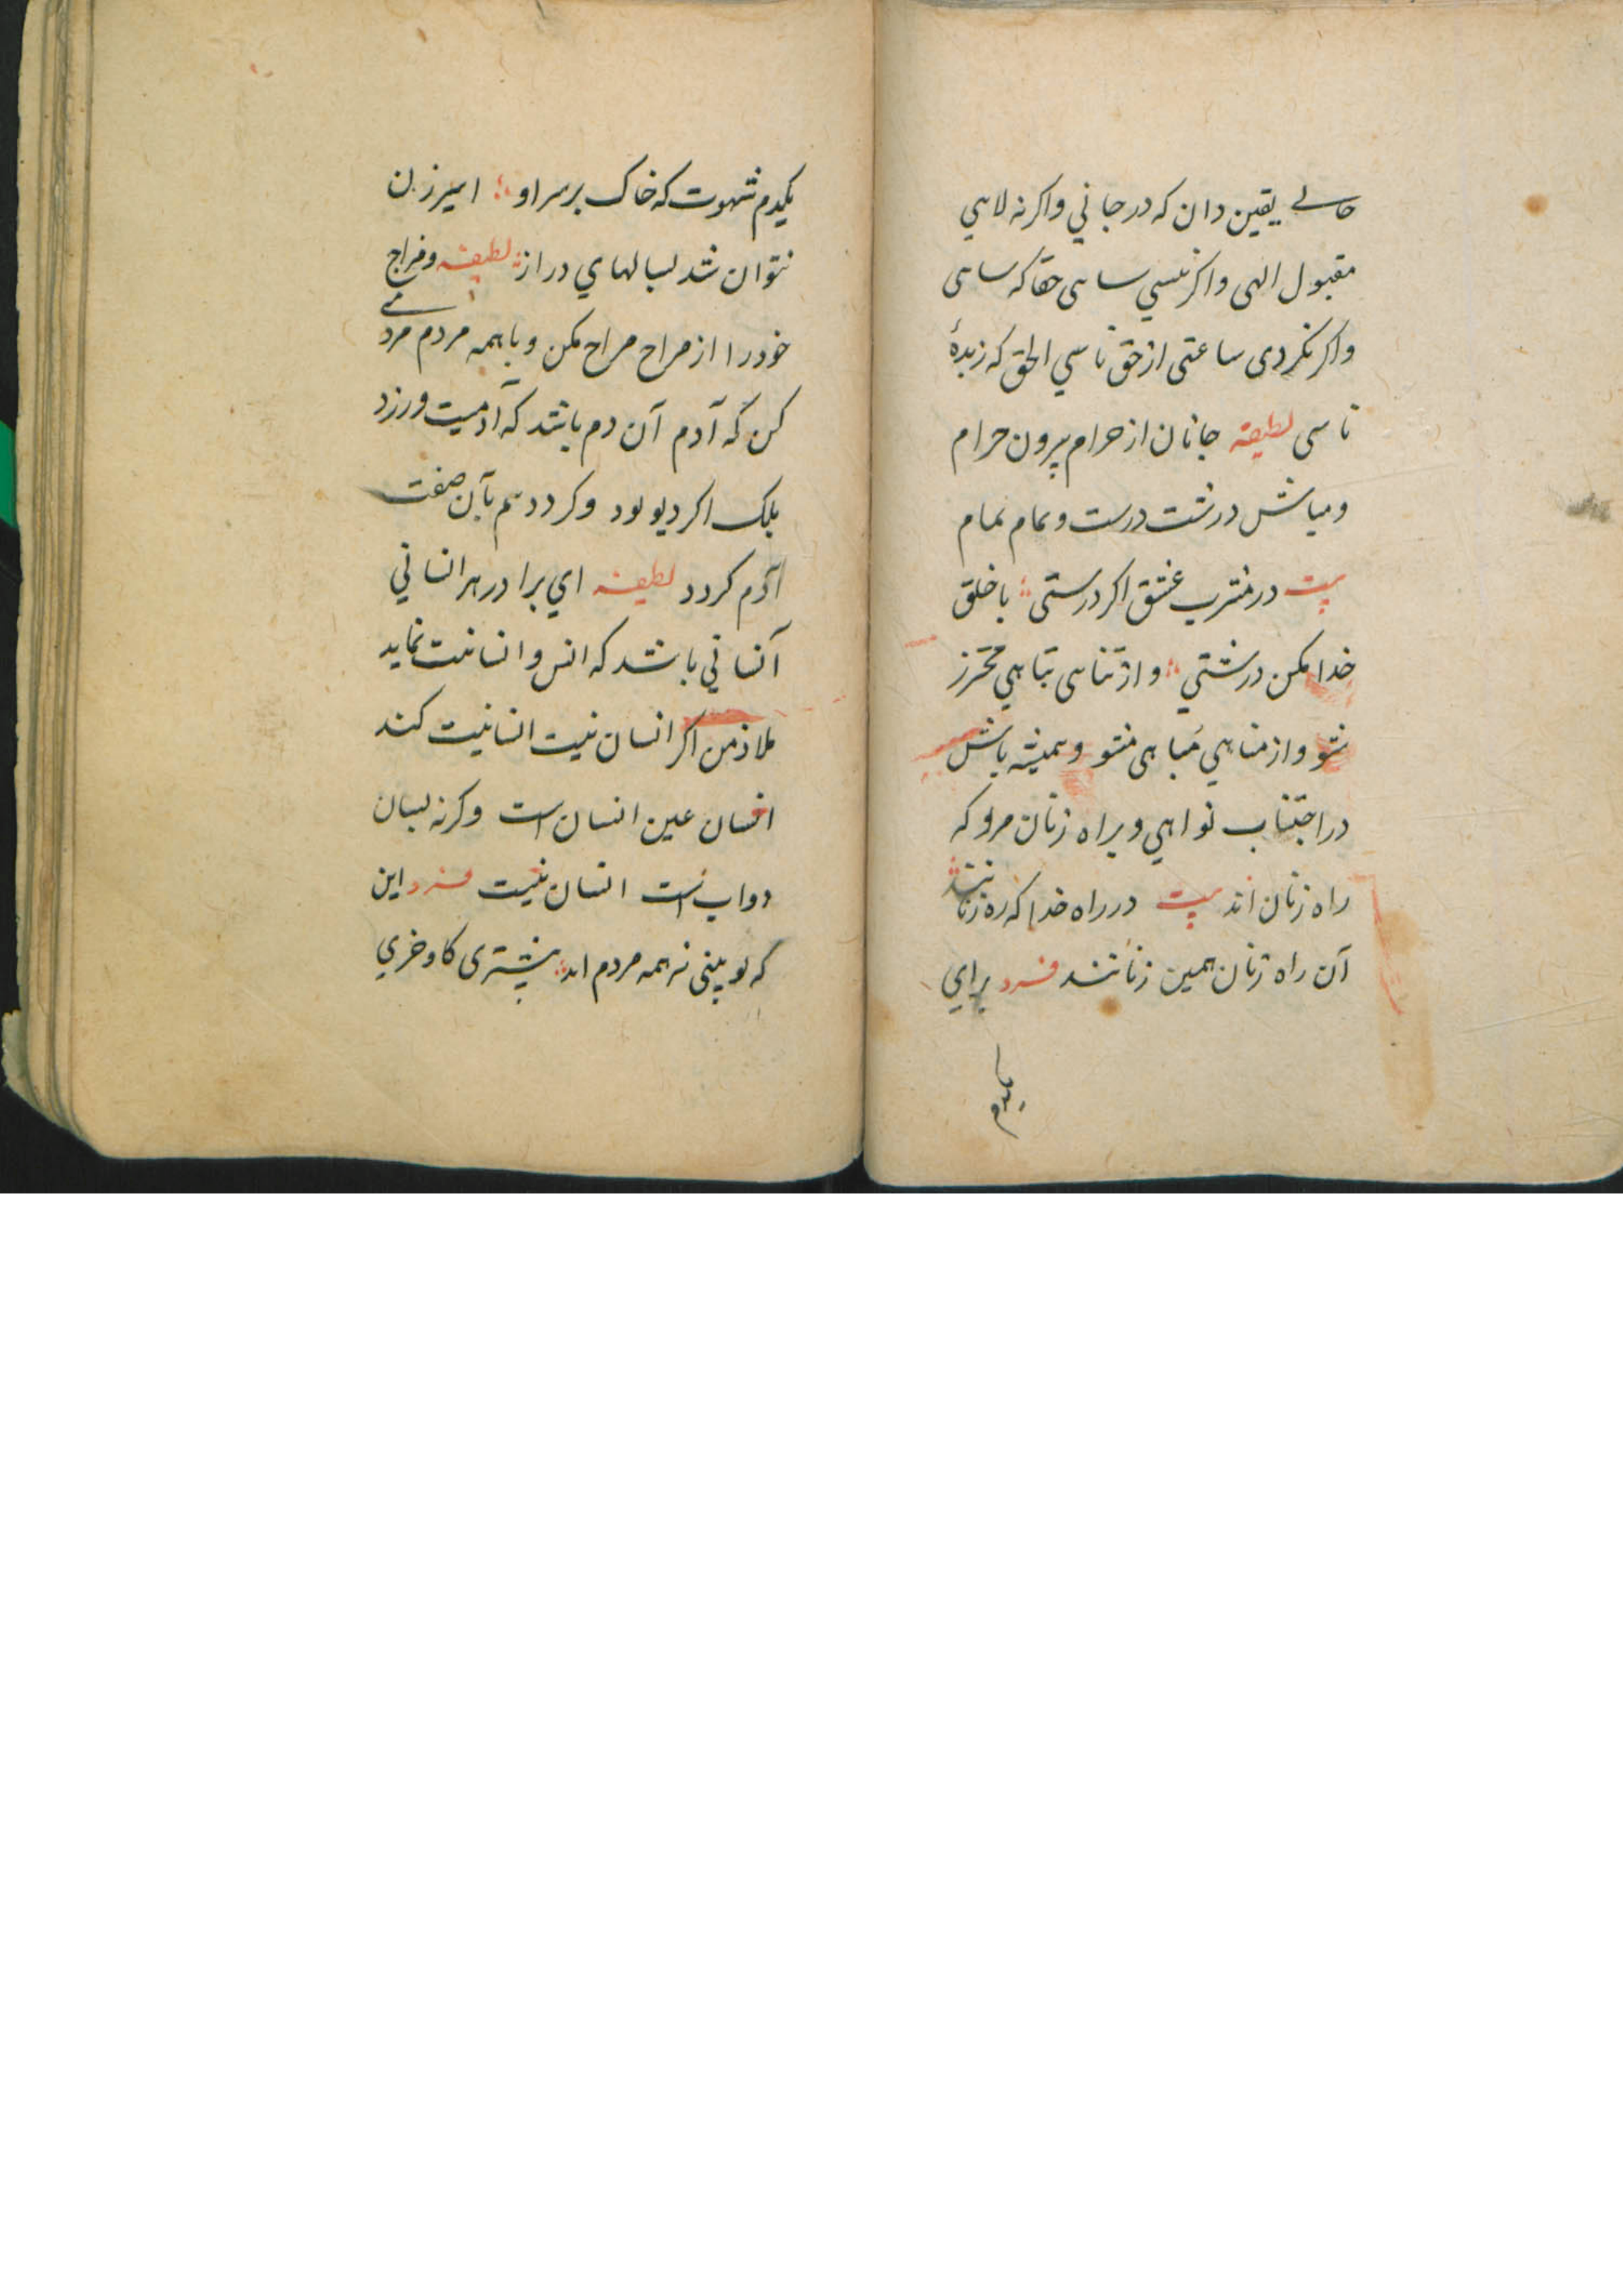 حالے یقین دان که در جانی واکر نه لاهی
مقبول الهی واکر نسی ساهی حقا که ساهی
واکر نکردی ساعتی از حق ناسی الحق که زبدهٔ
ناسی لطیفه جانان از حرام بیرون خرام
ومباش درشت درست و تمام تمام
بیت در مشرب عشق اکر درستی باخلق
خدا مکن درشتی واز تناهی تباهی محترز
شو واز مناهی مباهی مشو وهمیشه باش
در اجتناب نواهی وبراه زنان مرو که
راه زنان اند بیت در راه خدا که ره زنانند
آن راه زنان همین زنانند فرد برای
یکدم
یکدم شهوت که خاک بر سر او اسیر زن
نتوان شد بسالهای دراز لطیفه ومزاج
خود را از مراح مراح مکن وباهمه مردم مردمے
کن که آدم آن دم باشد که آدمیت ورزد
بلک اکر دیو بود وکردد هم بآن صفت
آدم کردد لطیفه ای برادر هر انسانی
آنسانی باشد که انس وانسانیت نماید
ملاذ من اکر انسان نیت انسانیت کند
انسان عین انسان است وکرنه بسان
دواب است انسان نیست فرد این
که تو بینی نه همه مردم اند بیشتری کاو خری